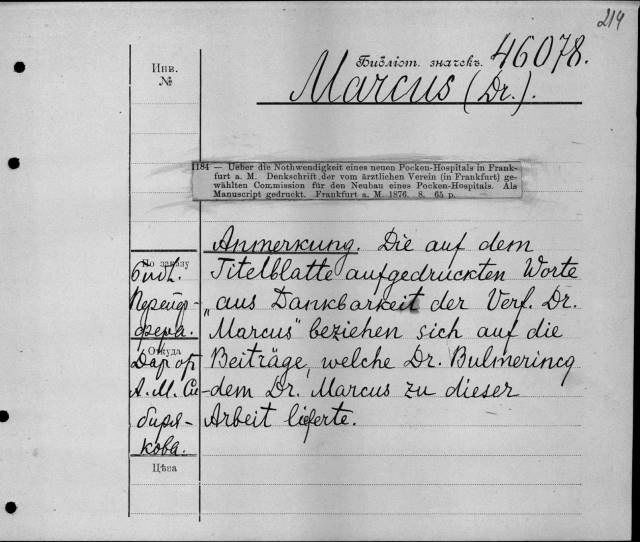 214
Инв.
№
Библіот. значекъ. 46078.
Marcus (Dr.).
1184 — Ueber die Nothwendigkeit eines neuen Pocken-Hospitals in Frank-
furt a. M. Denkschrift der vom ärztlichen Verein (in Frankfurt) ge-
wählten Commission für den Neubau eines Pocken-Hospitals. Als
Manuscript gedruckt. Frankfurt a. M. 1876. 8. 65 p.
Anmerkung. Die auf dem
Titelblatte aufgedruckten Worte
„aus Dankbarkeit der Verf. Dr.
Marcus" beziehen sich auf die
Beiträge, welche Dr. Bulmerincq
dem Dr. Marcus zu dieser
Arbeit lieferte.
По заказу
библ.
Перейдр-
фера.
Откуда
Дар от
А. М. Си-
биря-
кова.
Цѣна